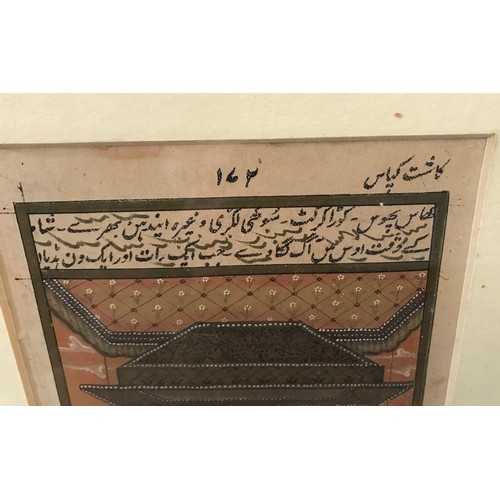 کاشت کپاس
۱۷۲
گھاس پھوس - کوڑا کرکٹ - سوکھی لکڑی وغیرہ ایندھن بھرے - شام
کے وقت اوس میں آگ لگاوے جب ایک رات اور ایک دن